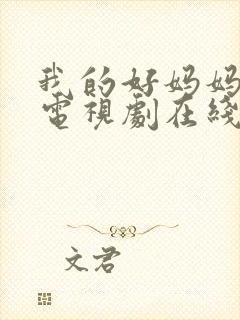 我的好妈妈
電視劇在綫
文君